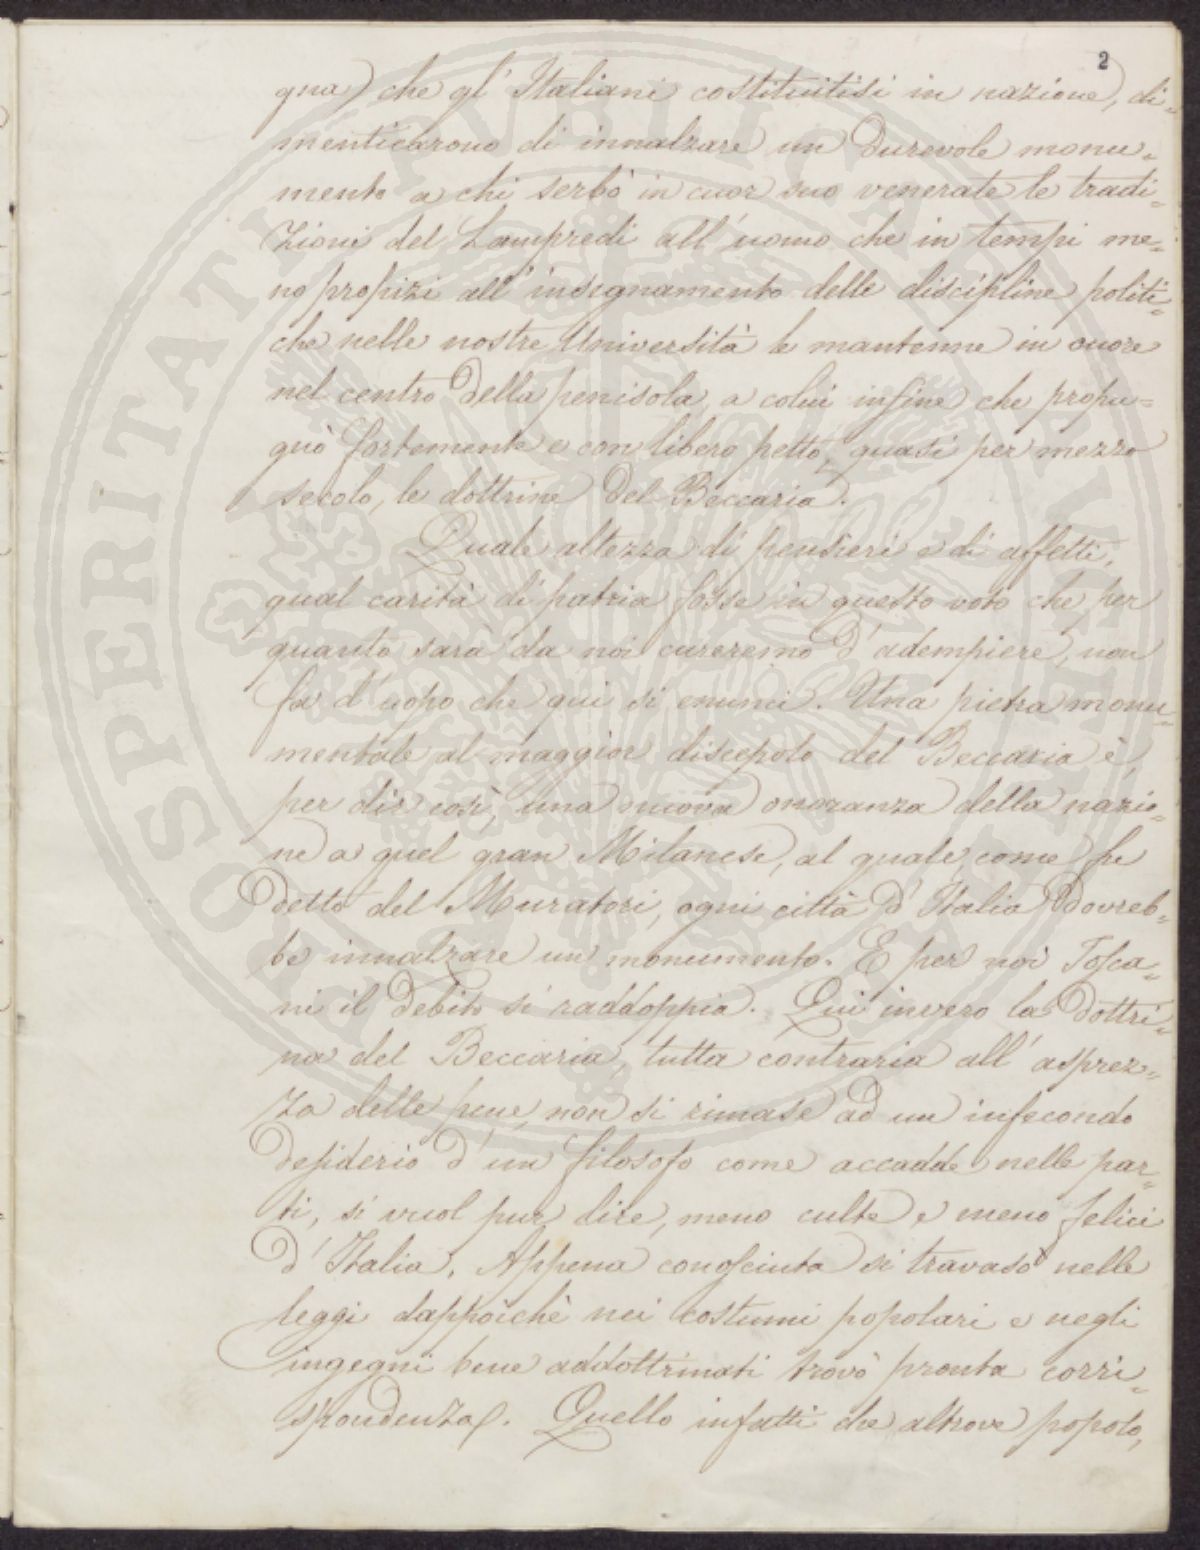 2
gna) che gl' Italiani costituitisi in nazione, di=
menticarono di innalzare un durevole monu=
mento a chi serbò in cuor suo venerate le tradi=
zioni del Lampredi all' uomo che in tempi me=
no propizi all' insegnamento delle discipline politi=
che nelle nostre Università le mantenne in onore
nel centro della penisola, a colui infine che propu=
gnò fortemente e con libero petto, quasi per mezzo
secolo, le dottrine del Beccaria.
Quale altezza di pensieri e di affetti,
qual carità di patria fosse in questo voto che per
quanto sarà da noi cureremo d' adempiere, non
fa d' uopo che qui si enunci. Una pietra monu=
mentale al maggior discepolo del Beccaria è,
per dir così, una nuova onoranza della nazio=
ne a quel gran Milanese, al quale, come fu
detto del Muratori, ogni città d' Italia dovreb=
be innalzare un monumento. E per noi Tosca=
ni il debito si raddoppia. Qui invero la dottri=
na del Beccaria, tutta contraria all' asprez=
za delle pene, non si rimase ad un infecondo
desiderio d' un filosofo come accadde nelle par=
ti, si vuol pur dire, meno culte e meno felici
d' Italia. Appena conosciuta si travasò nelle
leggi dappoichè nei costumi popolari e negli
ingegni bene addottrinati trovò pronta corri=
spondenza. Quello infatti che altrove popolo,
SPERITATI PVBLICAE